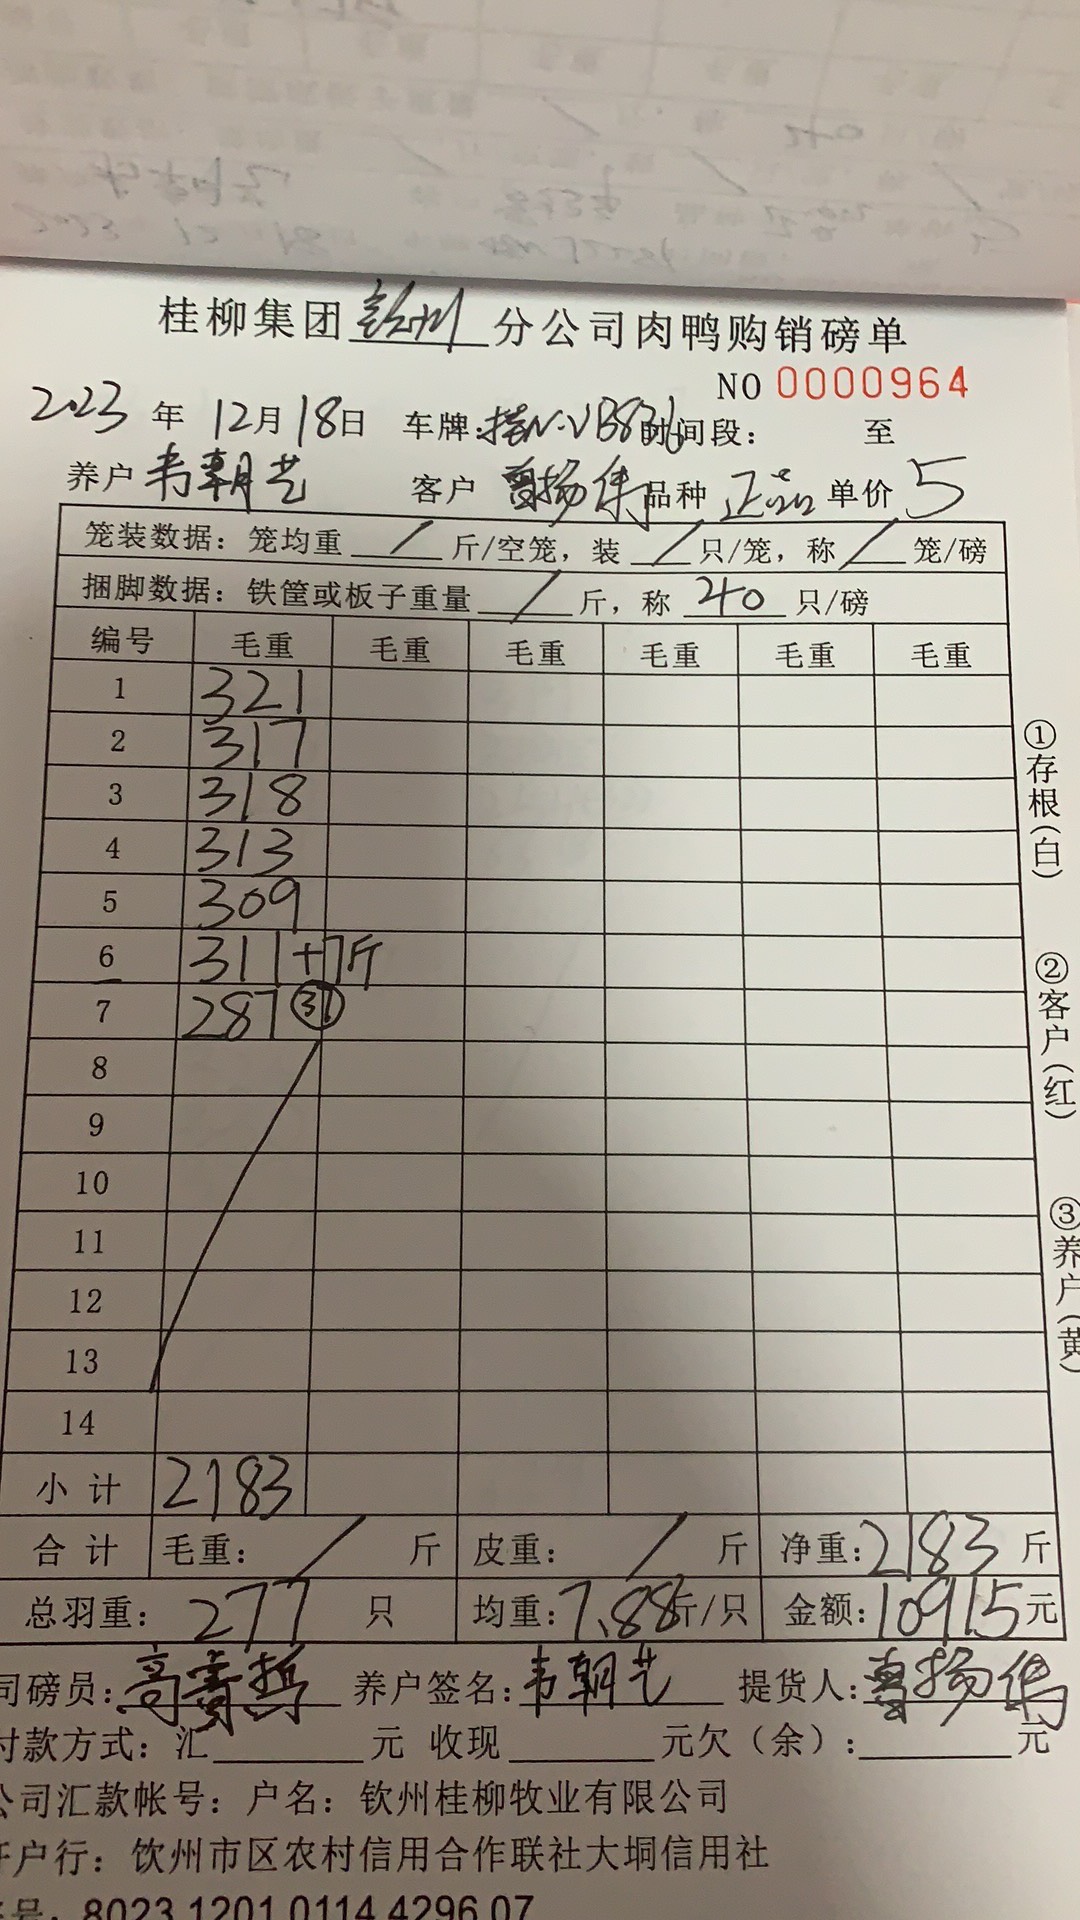 桂柳集团钦州分公司肉鸭购销磅单
NO 0000964
2023年12月18日 车牌:桂N·VB836 时间段: 至
养户 韦朝艺 客户 曾扬伟 品种 正品 单价 5
笼装数据: 笼均重 / 斤/空笼, 装 / 只/笼, 称 / 笼/磅
捆脚数据: 铁筐或板子重量 / 斤, 称 40 只/磅
编号 毛重 毛重 毛重 毛重 毛重 毛重
1 321
2 317
3 318
4 313
5 309
6 311+7斤
7 287 37
8
9
10
11
12
13
14
小计 2183
合计 毛重: / 斤 皮重: / 斤 净重:2183 斤
总羽重: 277 只 均重:7.88斤/只 金额:10915元
司磅员: 养户签名:韦朝艺 提货人:曾扬伟
付款方式: 汇 元 收现 元欠(余): 元
公司汇款帐号: 户名: 钦州桂柳牧业有限公司
开户行: 钦州市区农村信用合作联社大垌信用社
号: 8023 1201 0114 4296 07
①存根(白)
②客户(红)
③养户(黄)